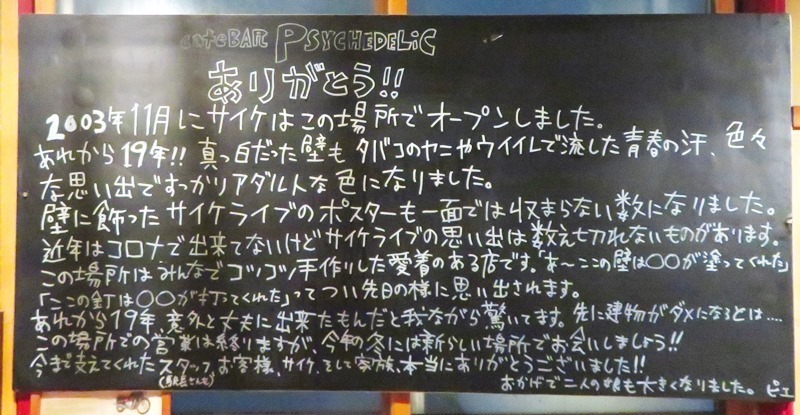 cafeBAR PSYCHEDELiC
ありがとう!!
2003年11月にサイケはこの場所でオープンしました。
あれから19年!! 真っ白だった壁もタバコのヤニやウイイレで流した青春の汗、色々
な思い出ですっかりアダルトな色になりました。
壁に飾ったサイケライブのポスターも一面では収まらない数になりました。
近年はコロナで出来てないけどサイケライブの思い出は数え切れないものがあります。
この場所はみんなでコツコツ手作りした愛着のある店です。「あ〜ここの壁は〇〇が塗ってくれた」
「ここの釘は〇〇が打ってくれた」ってつい先日の様に思い出されます。
あれから19年 意外と丈夫に出来たもんだと我ながら驚いてます。先に建物がダメになるとは....
この場所での営業は終りますが、今年の冬には新らしい場所でお会いしましょう!!
今まで支えてくれたスタッフ、お客様、サイケ、そして家族、本当にありがとうございました!!
(駅長さんも)
おかげで二人の娘も大きくなりました。ピエ